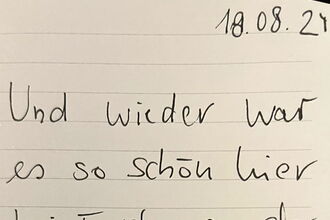 18.08.24
Und wieder war
es so schön hier